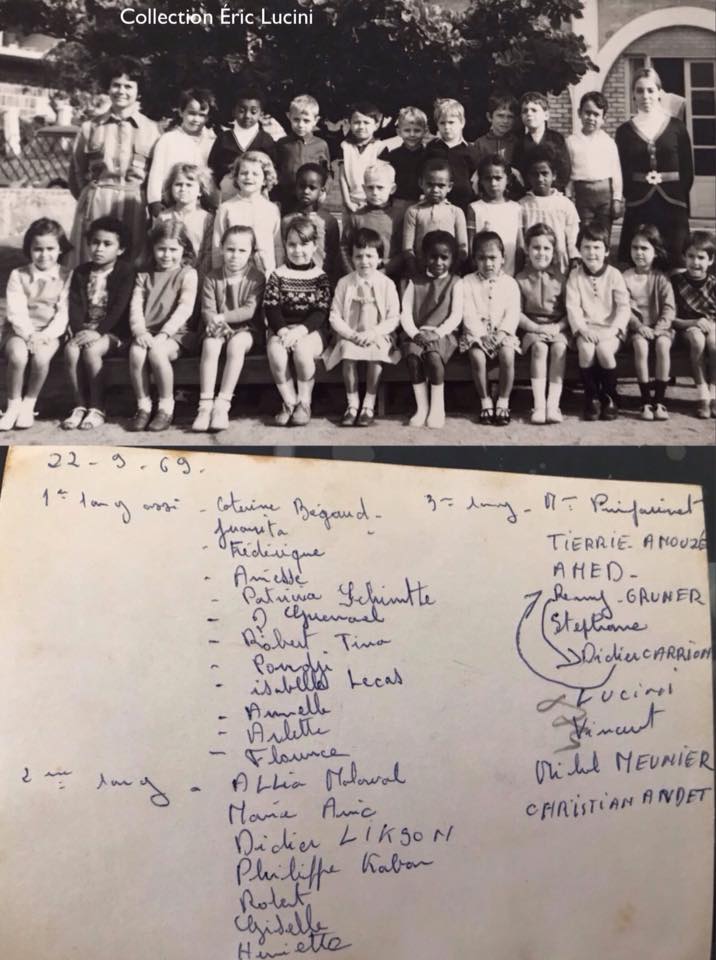 Collection Éric Lucini
22-9-69.
1er rang assi - Caterine Bégaud -
Juanita
- Frédérique
- Anièsse
- Patricia Schimtte
- Guenael
- Robert. Tina
- Pondji
- isabelle Lecas
- Annelle
- Arlette
- Florence
2me rang - ALLia Malaval
Marie Anic
Didier LIKSON
Philippe Kaban
Robert
Giselle
Henriette
3me rang - Mme
TIERRIE - AMOUZÉ
AMED -
Remy - GRUNER
Stephane
Didier CARRION
LUCINI
Vincent
Michel MEUNIER
CHRISTIAN ANDET